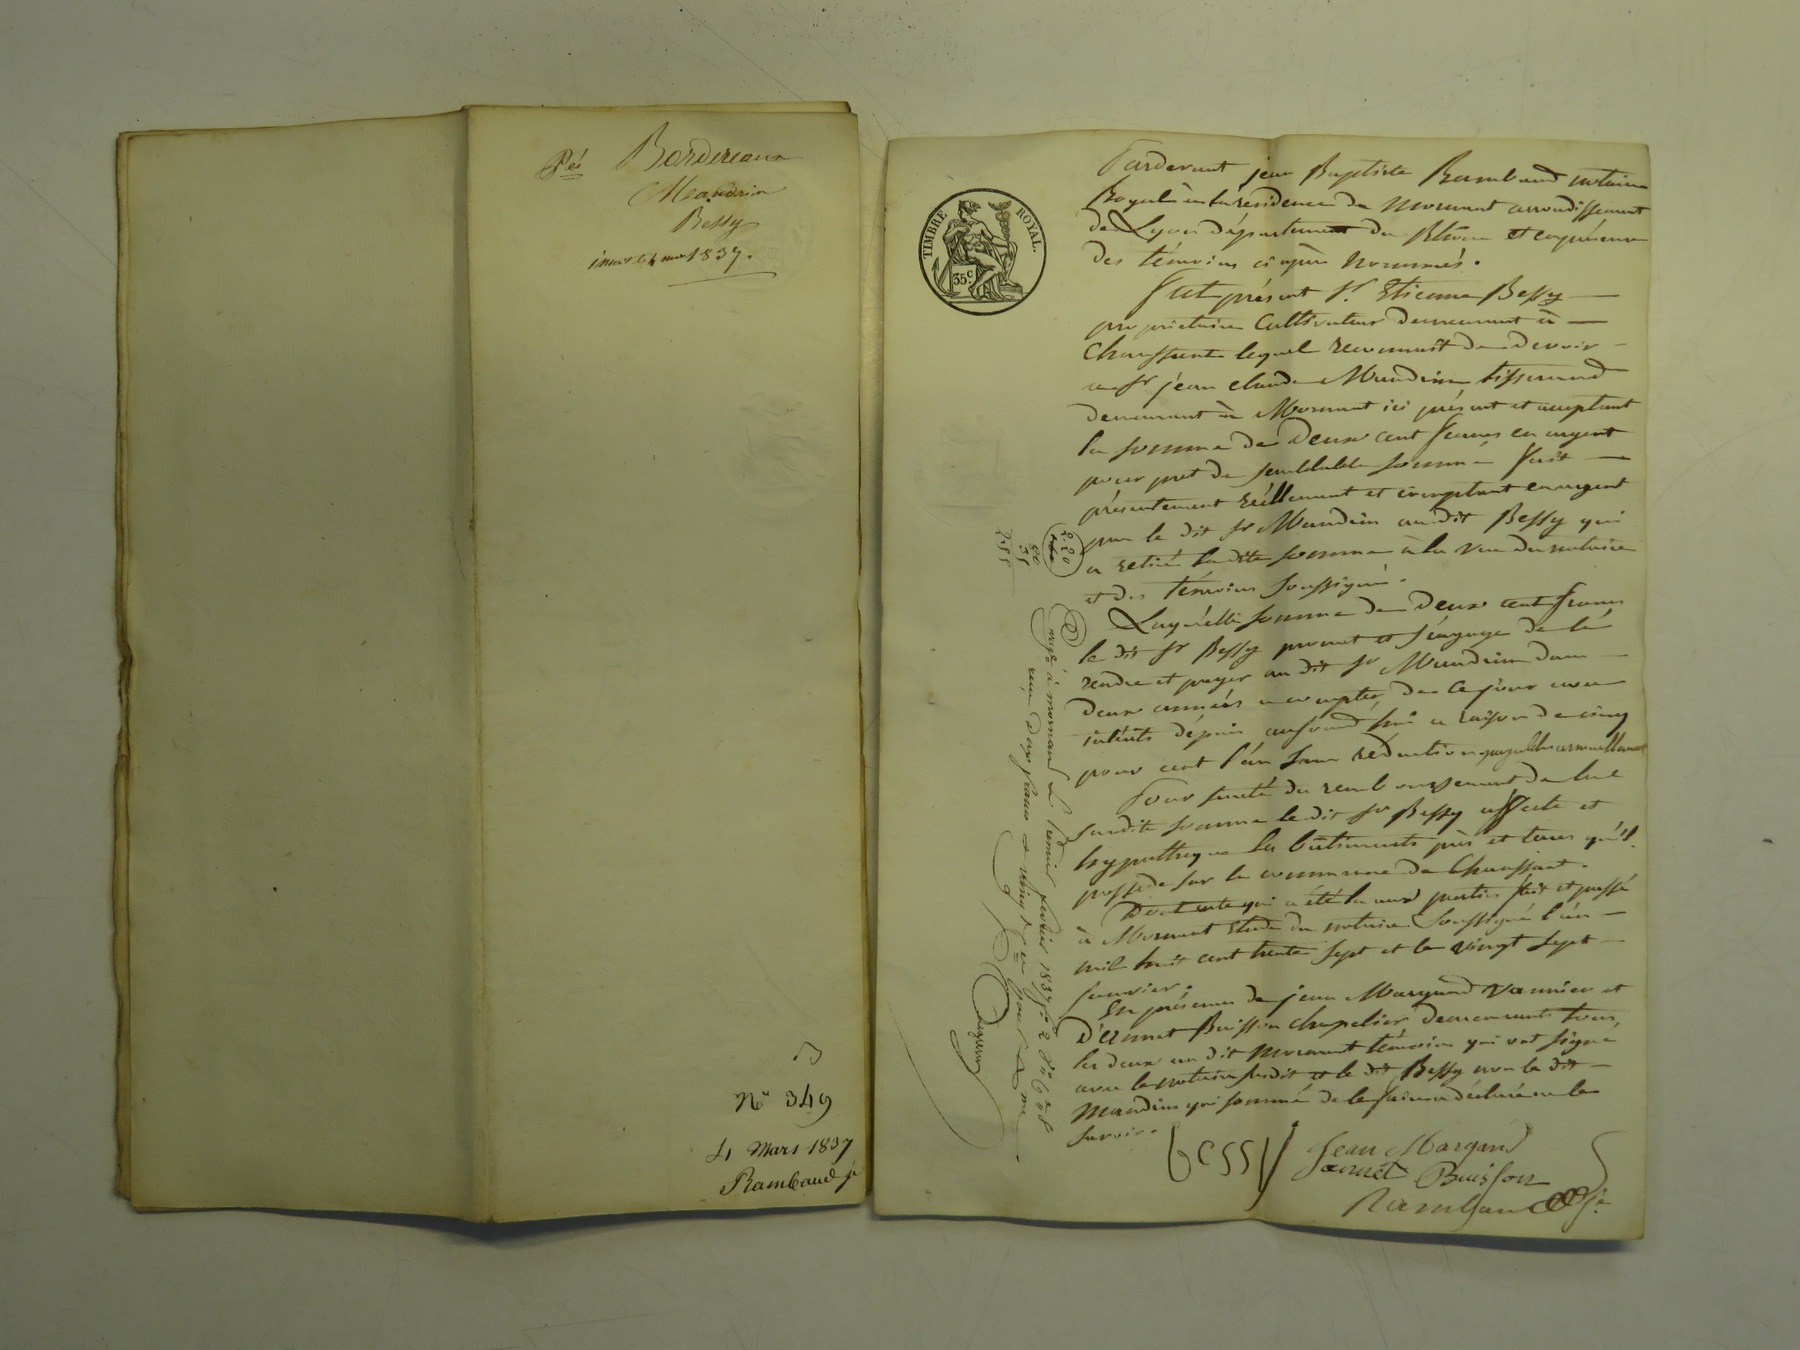 Pé Bordereau
Mandrin
Bessy
inscrit le 4 mars 1837.
N° 349
4 Mars 1837
Rambaud je
TIMBRE ROYAL.
35 c.
Pardevant jean Baptiste Rambaud notaire
Royal à la résidence de Mornant arrondissement
de Lyon département du Rhône et en présence
des témoins ci après nommés.
Fut présent Sr. Etienne Bessy
propriétaire Cultivateur demeurant à
Chaussant lequel reconnait de devoir
au Sr jean claude Mandrin tisserand
demeurant à Mornant ici présent et acceptant
la somme de Deux cent francs en argent
pour pret de semblable somme fait
présentement réellement et comptant en argent
par le dit Sr Mandrin au dit Bessy qui
a retiré la dite somme à la vue du notaire
et des témoins soussignés.
Laquelle somme de Deux cent francs
le dit Sr Bessy promet et s'engage de le
rendre et payer au dit Sr Mandrin dans
deux années a compter de ce jour avec
intérêts dépuis aujourd'hui a raison de cinq
pour cent l'an sans réduction payables annuellement
Pour sureté du remboursement de la
susdite somme le dit Sr Bessy affecte et
hypothèque les bâtiments près et terres qu'il
possède sur la commune de Chaussant.
Dont acte qui a été lu aux parties fait et passé
à Mornant Etude du notaire soussigné l'an
mil huit cent trente sept et le vingt sept
janvier.
En présence de jean Margand vannier et
d'Ennet Buisson chapelier demeurants tous
les deux au dit Mornant témoins qui ont signé
avec le notaire susdit et le dit Bessy non le dit
Mandrin qui sommé de le faire a déclaré ne le
savoir.
Bessy
Jean Margand
Buisson
Rambaud je
2.20
35
2.55
à mornant le premier février 1837 f°
reçu deux francs et vingt